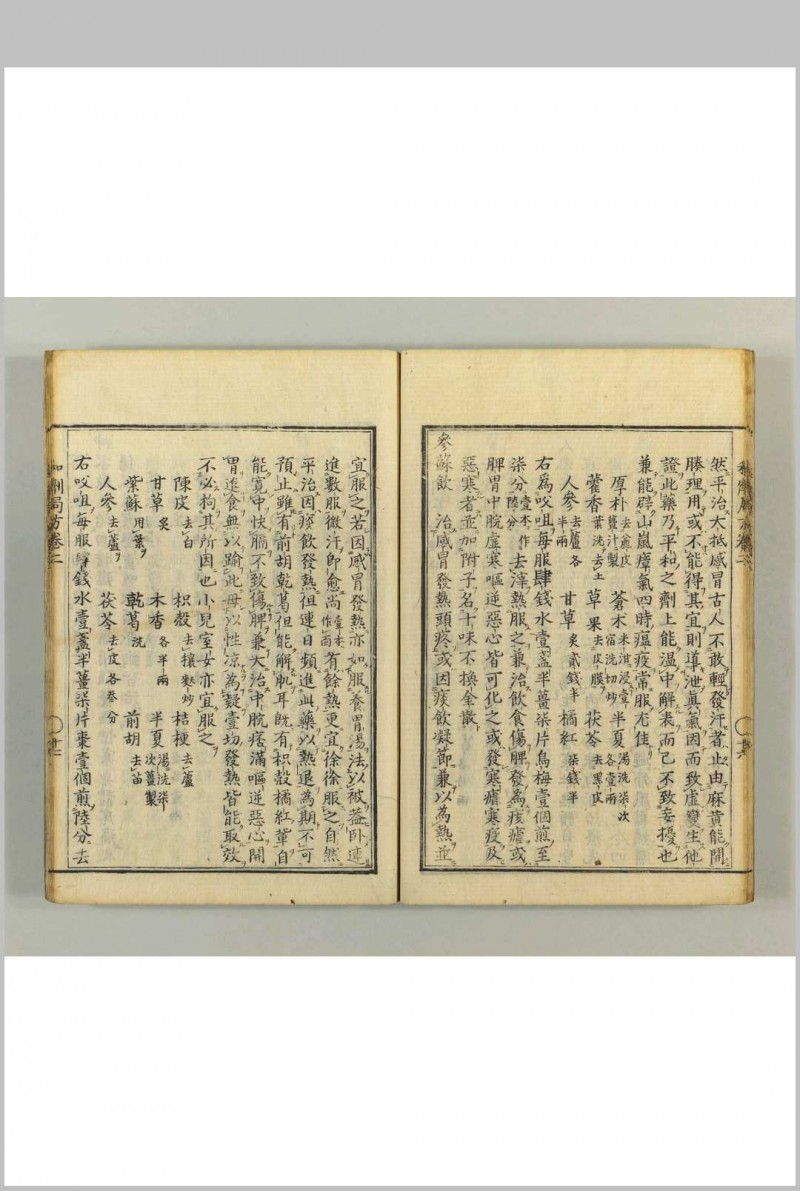 然平治大抵感冒古人不敢輕發汗者止由麻黃能開
腠理用或不能得其宜則導泄真氣因而致虛變生他
證此藥乃平和之劑上能溫中解表而已不致妄擾也
兼能辟山嵐瘴氣四時瘟疫常服尤佳
厚朴去麄皮薑汁製 蒼朮米泔浸壹宿洗切炒 半夏湯洗柒次各壹兩
藿香葉洗去土 草果去皮膜 茯苓去黑皮
人參去蘆各半兩 甘草炙貳錢半 橘紅柒錢半
右為㕮咀每服肆錢水壹盞半薑柒片烏梅壹個煎至
柒分壹本作陸分去滓熱服之兼治飲食傷脾發為痎瘧或
脾胃中脘虛寒嘔逆惡心皆可化之或發寒瘧寒疫及
惡寒者並加附子名十味不換金散
參蘇飲 治感冒發熱頭疼或因痰飲凝節兼以為熱並
宜服之若因感冒發熱亦如服養胃湯法以被蓋臥連
進數服微汗即愈尚有餘熱更宜徐徐服之自然
平治因痰飲發熱但連日頻進此藥以熱退為期不可
預止雖有前胡乾葛但能解肌耳既有枳殼橘紅輩自
能寬中快膈不致傷脾兼大治中脘痞滿嘔逆惡心開
胃進食無以踰此毋以性涼為疑壹切發熱皆能取效
不必拘其所因也小兒室女亦宜服之
陳皮去白 枳殼去穰麩炒 桔梗去蘆
甘草炙 木香各半兩 半夏湯洗柒次薑製
紫蘇用葉 乾葛洗 前胡去苗
人參去蘆 茯苓去皮各叄分
右㕮咀每服肆錢水壹盞半薑柒片棗壹個煎陸分去
和劑局方卷二